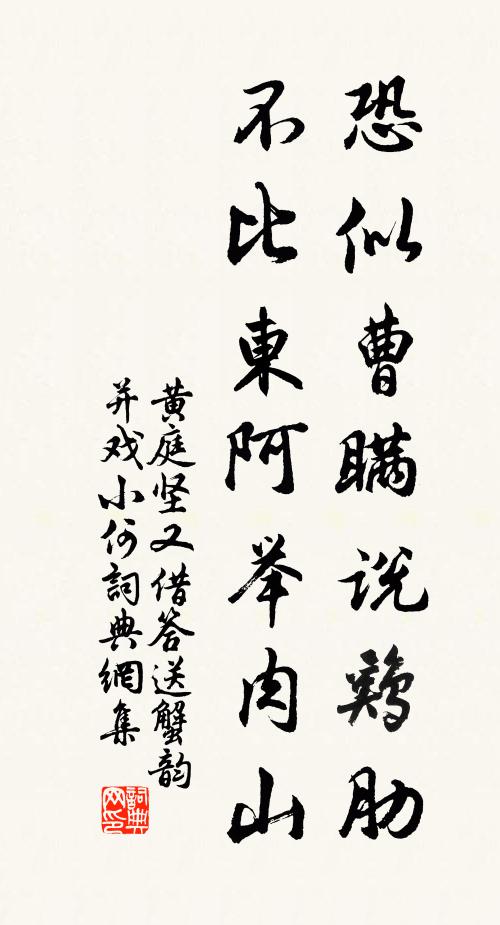 恐似曹瞞说鷄肋
不比東阿举肉山
黄庭坚又借答送蟹韵
并戏小何詞典網集
詞典网印